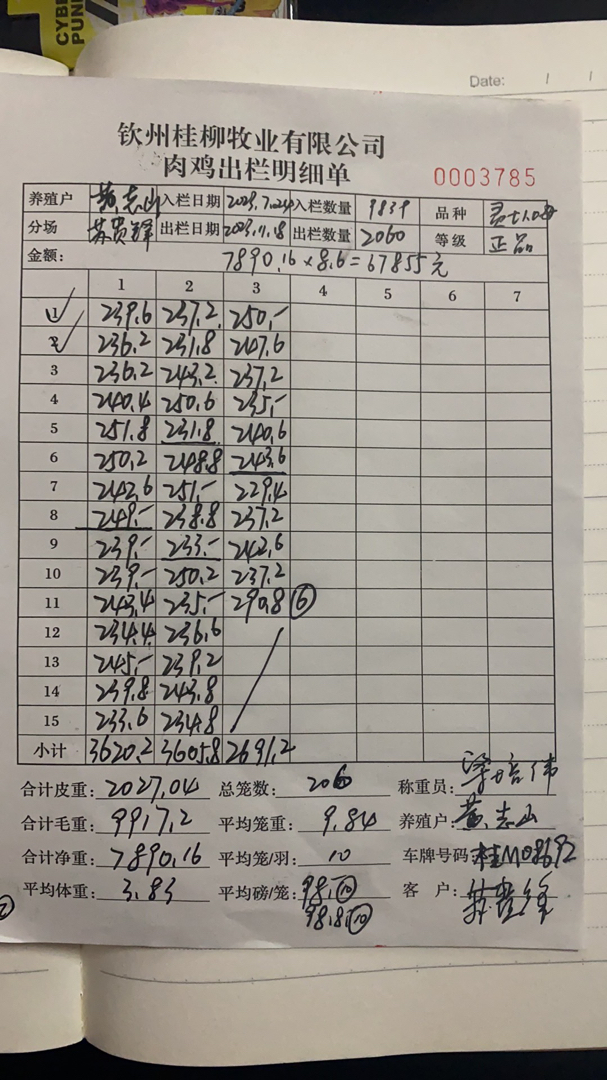 CYBE
PUN
Date: / /
钦州桂柳牧业有限公司
肉鸡出栏明细单
0003785
养殖户 黄志山 入栏日期 入栏数量 9839 品种
分场 出栏日期 2023.11.18 出栏数量 2060 等级 正品
金额: 7890.16×8.6=67855元
1 2 3 4 5 6 7
1 239.6 237.2 250.-
2 236.2 231.8 247.6
3 236.2 243.2 237.2
4 240.4 250.6 235.-
5 251.8 231.8 240.6
6 250.2 248.8 243.6
7 242.6 251.- 229.4
8 249.- 238.8 237.2
9 239.- 233.- 242.6
10 239.- 250.2 237.2
11 243.4 235.- 290.8 ⑥
12 234.4 236.6
13 245.- 239.2
14 239.8 243.8
15 233.6 234.8
小计 3620.2 3605.8 2691.2
合计皮重: 2027.04 总笼数: 206 称重员: 梁培伟
合计毛重: 9917.2 平均笼重: 9.84 养殖户: 黄志山
合计净重: 7890.16 平均笼/羽: 10 车牌号码 桂M08692
平均体重: 3.83 平均磅/笼: 98.⑩ 客 户:
98.8.⑩